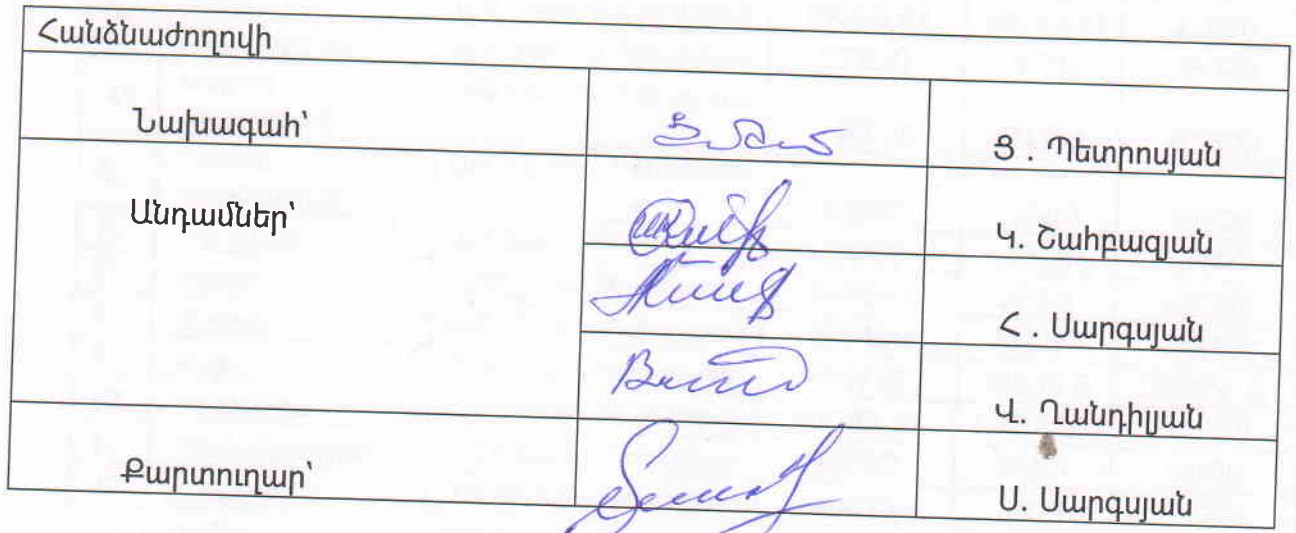 Հանձնաժողովի
Նախագահ՝
Ց . Պետրոսյան
Անդամներ՝
Կ. Շահբազյան
Հ . Սարգսյան
Վ. Ղանդիլյան
Քարտուղար՝
Ս. Սարգսյան